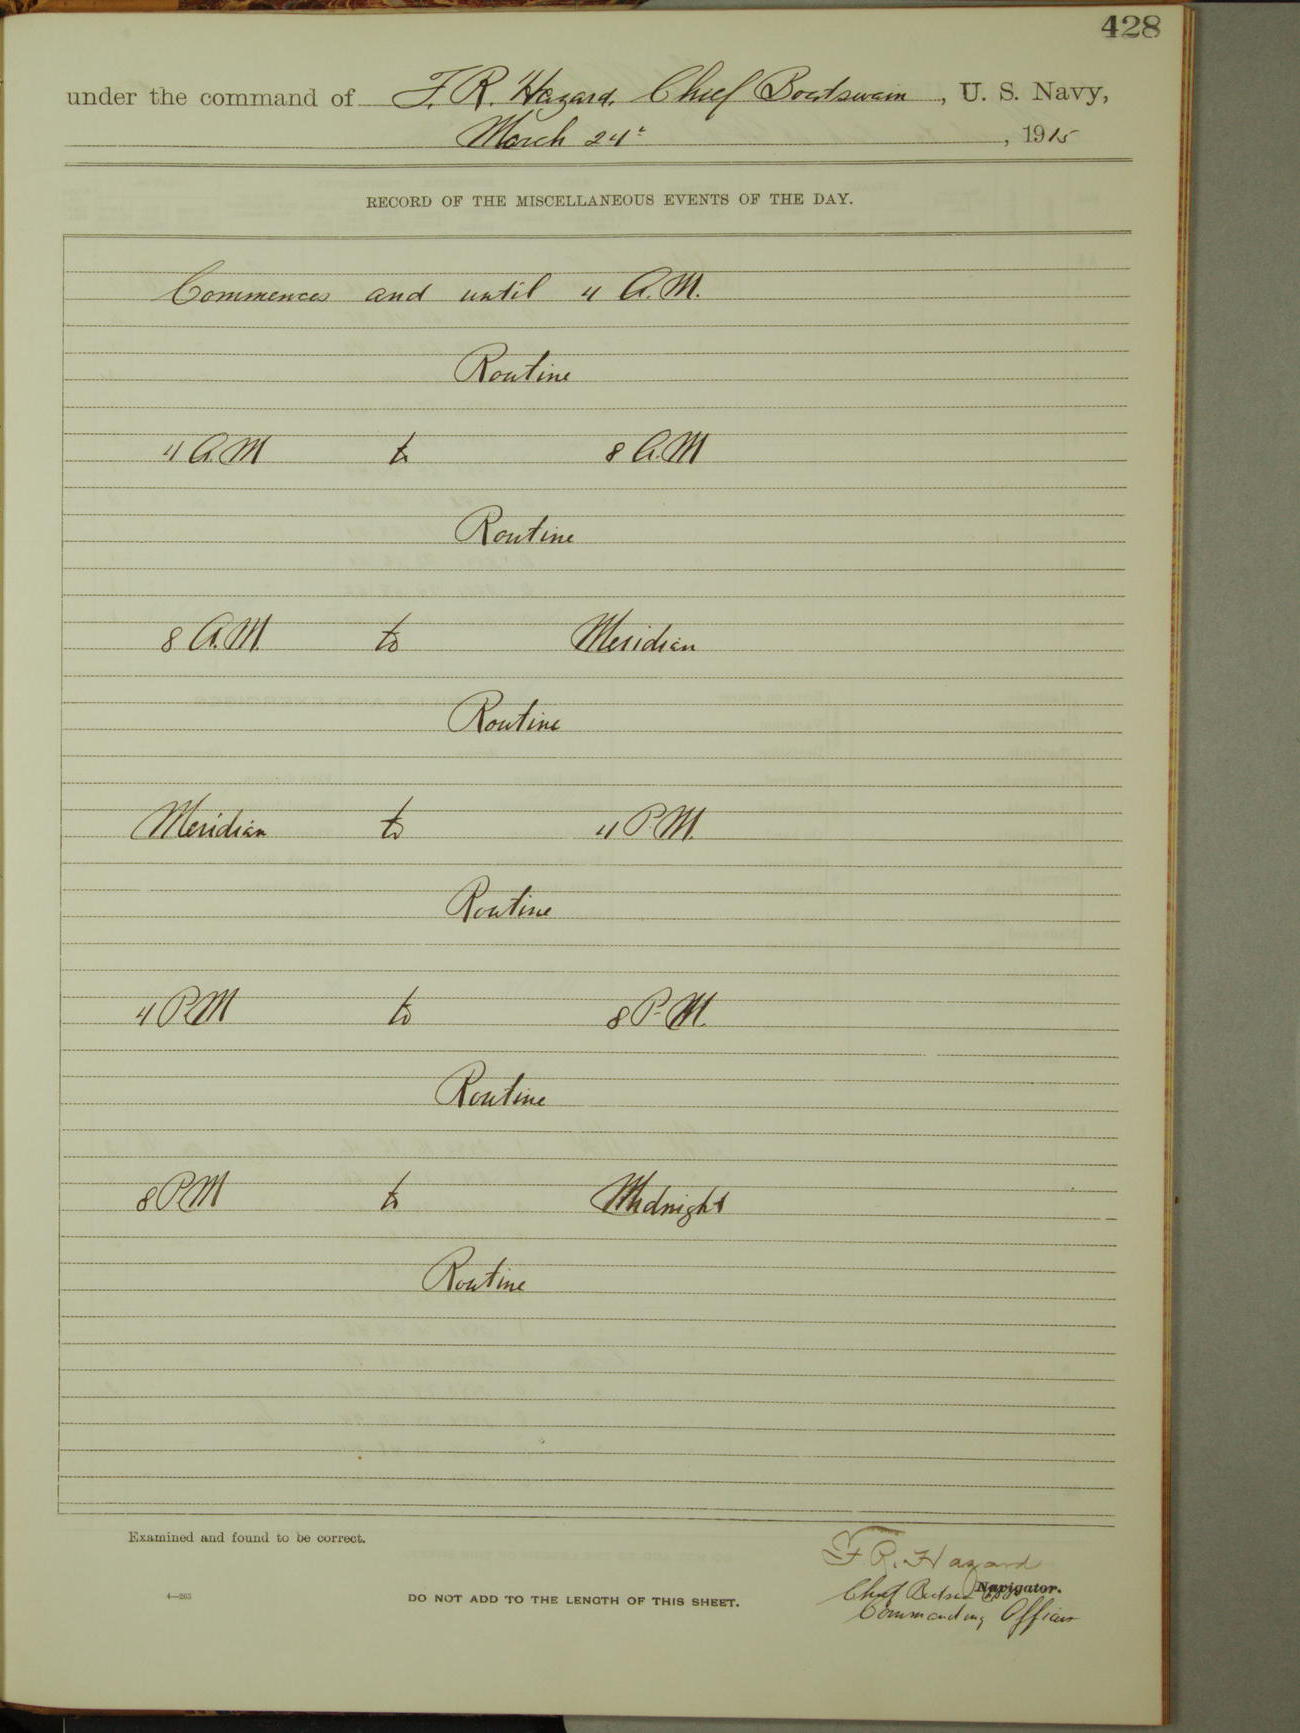 428
under the command of F. R. Hazard, Chief Boatswain, U. S. Navy,
March 24th, 1915
RECORD OF THE MISCELLANEOUS EVENTS OF THE DAY.
Commences and until 4 A.M.
Routine
4 A.M to 8 A.M
Routine
8 A.M. to Meridian
Routine
Meridian to 4 P.M.
Routine
4 P.M to 8 P.M.
Routine
8 P.M to Midnight
Routine
Examined and found to be correct.
F. R. Hazard
Navigator.
Chief
Commanding Officer
4—263
DO NOT ADD TO THE LENGTH OF THIS SHEET.